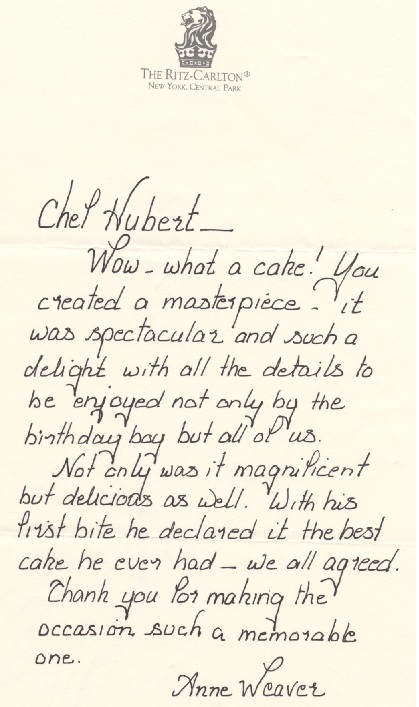 THE RITZ-CARLTON®
NEW YORK, CENTRAL PARK
Chef Hubert—
Wow - what a cake! You
created a masterpiece - it
was spectacular and such a
delight with all the details to
be enjoyed not only by the
birthday boy but all of us.
Not only was it magnificent
but delicious as well. With his
first bite he declared it the best
cake he ever had - we all agreed.
Thank you for making the
occasion such a memorable
one.
Anne Weaver